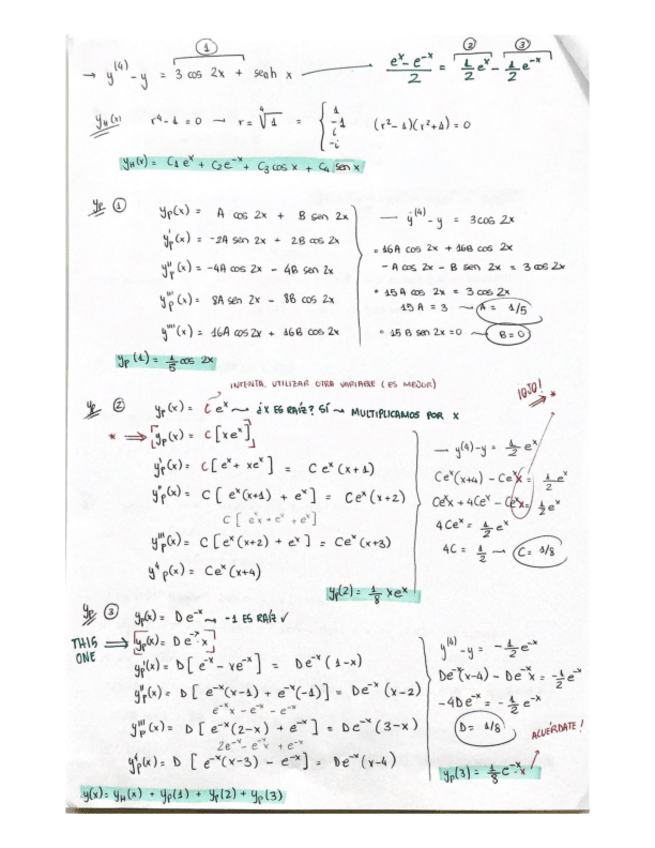 ① 
→ y⁽⁴⁾ - y = 3 cos 2x + senh x —— (eˣ - e⁻ˣ)/2 = ② 1/2 eˣ - ③ 1/2 e⁻ˣ
y_H(x) r⁴-1=0 → r = ⁴√1 = { 1 -1 i -i (r²-1)(r²+1)=0
y_H(x) = C₁eˣ + C₂e⁻ˣ + C₃cos x + C₄ sen x
yp ① yp(x) = A cos 2x + B sen 2x
y'p(x) = -2A sen 2x + 2B cos 2x
y''p(x) = -4A cos 2x - 4B sen 2x
y'''p(x) = 8A sen 2x - 8B cos 2x
y''''(x) = 16A cos 2x + 16B cos 2x
— y⁽⁴⁾ - y = 3 cos 2x
= 16A cos 2x + 16B cos 2x
- A cos 2x - B sen 2x = 3 cos 2x
• 15A cos 2x = 3 cos 2x
15A = 3 → A = 1/5
• 15 B sen 2x = 0 → B = 0
yp(1) = 1/5 cos 2x
INTENTA UTILIZAR OTRA VARIABLE (ES MEJOR)
yp ② yp(x) = C eˣ → ¿X ES RAÍZ? SÍ → MULTIPLICAMOS POR X
* ⇒ [yp(x) = C[xeˣ]]
y'p(x) = C[eˣ + xeˣ] = C eˣ (x+1)
y''p(x) = C [eˣ(x+1) + eˣ] = Ceˣ (x+2)
C [ eˣx + eˣ + eˣ]
y'''p(x) = C [eˣ(x+2) + eˣ] = Ceˣ (x+3)
y⁴p(x) = Ceˣ (x+4)
¡OJO! → *
— y⁽⁴⁾-y = 1/2 eˣ
Ceˣ(x+4) - Ceˣx = 1/2 eˣ
Ceˣx + 4Ceˣ - Ceˣx = 1/2 eˣ
4Ceˣ = 1/2 eˣ
4C = 1/2 → C = 1/8
yp(2) = 1/8 xeˣ
yp ③ yp(x) = De⁻ˣ → -1 ES RAÍZ ✓
THIS ONE ⇒ [yp(x) = D e⁻ˣ·x]
y'p(x) = D[ e⁻ˣ - xe⁻ˣ] = De⁻ˣ (1-x)
y''p(x) = D [ e⁻ˣ(x-1) + e⁻ˣ(-1)] = De⁻ˣ (x-2)
e⁻ˣx - e⁻ˣ - e⁻ˣ
y'''p(x) = D [e⁻ˣ(2-x) + e⁻ˣ] = De⁻ˣ (3-x)
2e⁻ˣ - e⁻ˣx + e⁻ˣ
y⁴p(x) = D [ e⁻ˣ(x-3) - e⁻ˣ] = De⁻ˣ (x-4)
y⁽⁴⁾ - y = - 1/2 e⁻ˣ
De⁻ˣ(x-4) - De⁻ˣx = - 1/2 e⁻ˣ
-4De⁻ˣ = - 1/2 e⁻ˣ
D = 1/8
ACUÉRDATE!
yp(3) = 1/8 e⁻ˣ·x
y(x) = y_H(x) + yp(1) + yp(2) + yp(3)